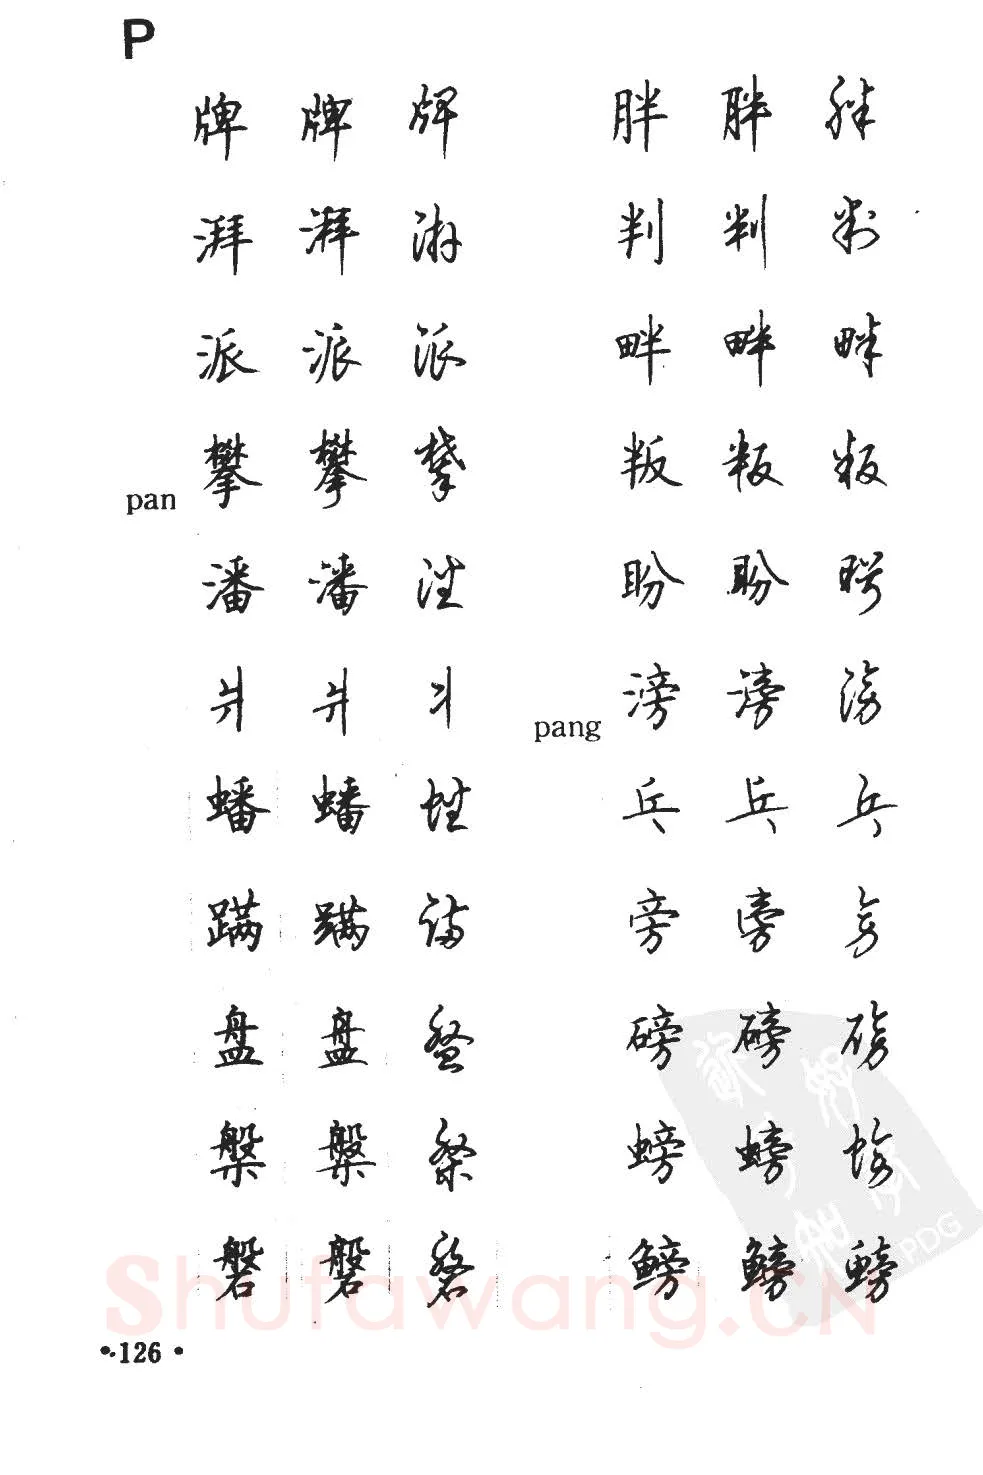 P
牌 牌 牌
湃 湃 湃
派 派 派
pan 攀 攀 攀
潘 潘 潘
爿 爿 爿
蟠 蟠 蟠
蹒 蹒 蹒
盘 盘 盘
槃 槃 槃
磐 磐 磐
胖 胖 胖
判 判 判
畔 畔 畔
叛 叛 叛
盼 盼 盼
pang 滂 滂 滂
乓 乓 乓
旁 旁 旁
磅 磅 磅
螃 螃 螃
鳑 鳑 鳑
Shufawang.CN
PDG
•126•